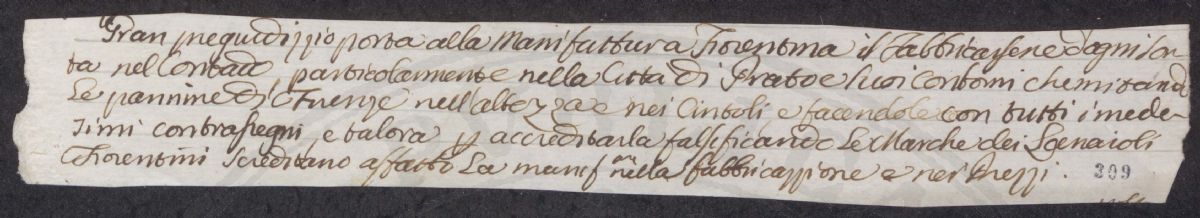 Gran pregiudizzio porta alla Manifattura Fiorentina il fabbricarsene d'ogni sor-
ta nel Contado, particolarmente nella Città di Prato e suoi contorni che imitando
Le pannine di Firenze nell'altezza e nei Cintoli e facendole con tutti i mede-
simi contrasegni, e talora p accreditarla falsificando le Marche dei Lanaioli
Fiorentini screditano affatto La manifra nella fabbricazzione e nei Prezzi. 309